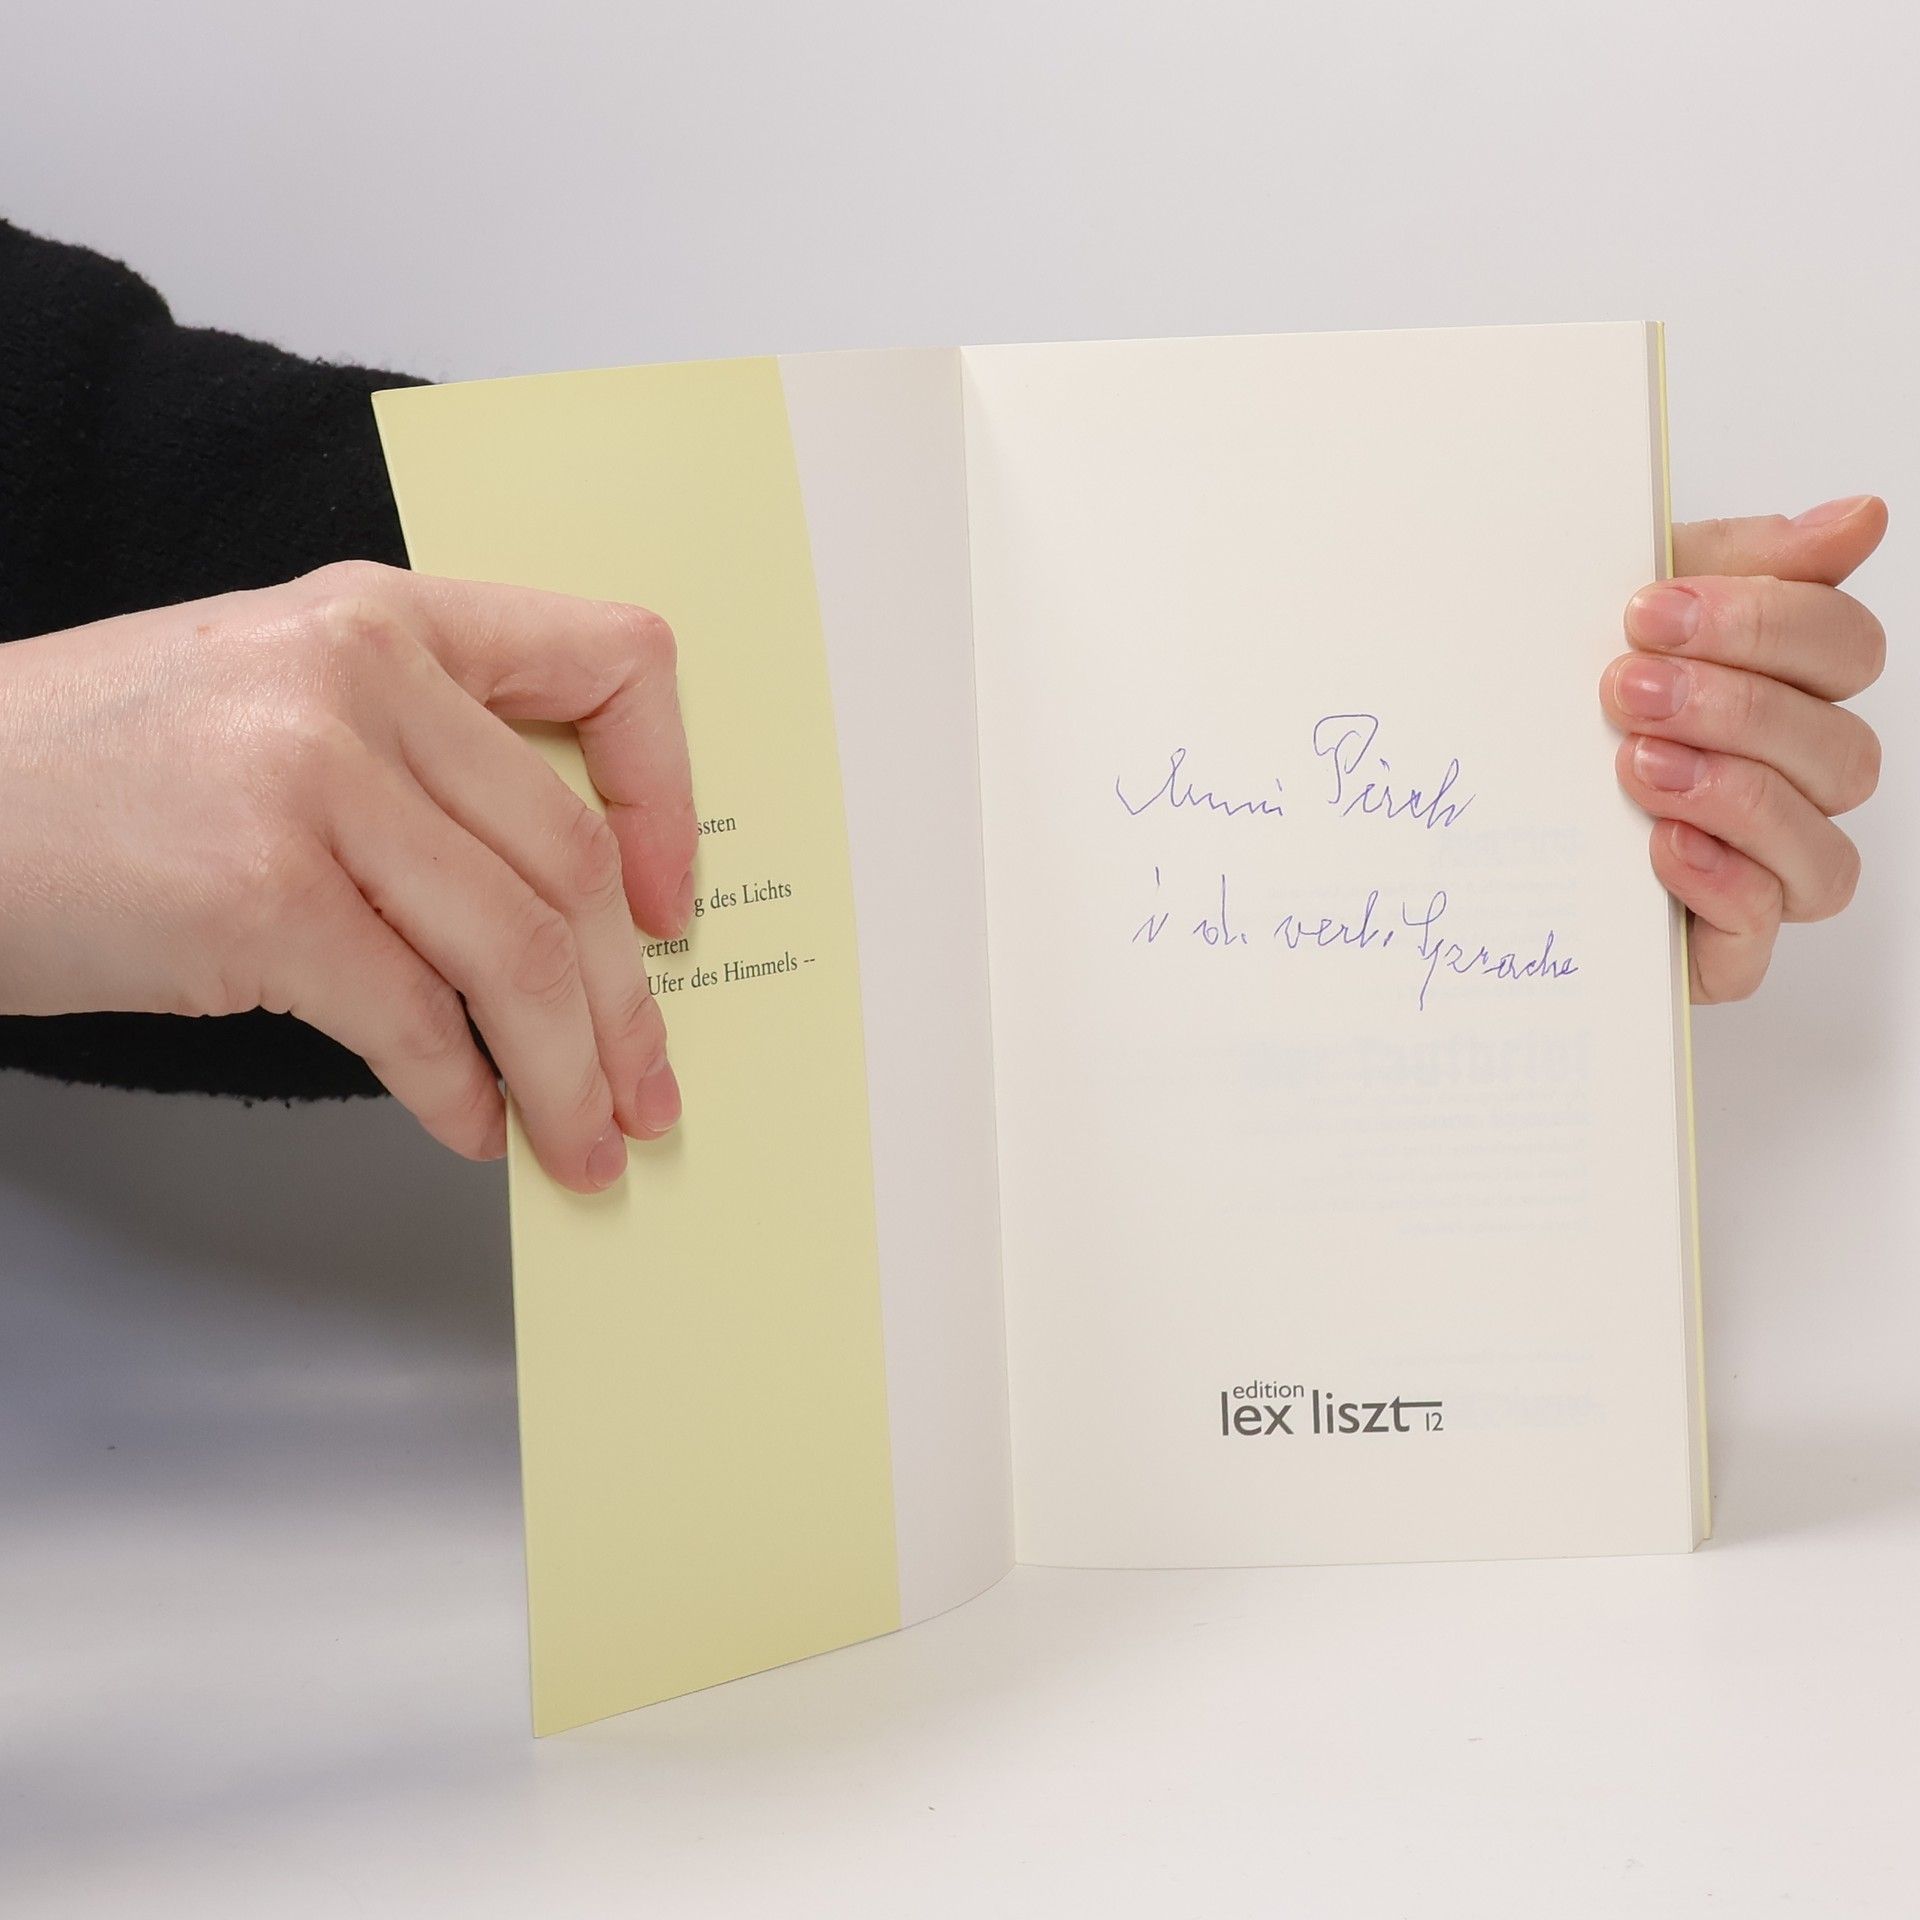 ssten
g des Lichts
werfen
Ufer des Himmels --
Anni Pirch
i d. verb. Sprache
edition
lex liszt 12